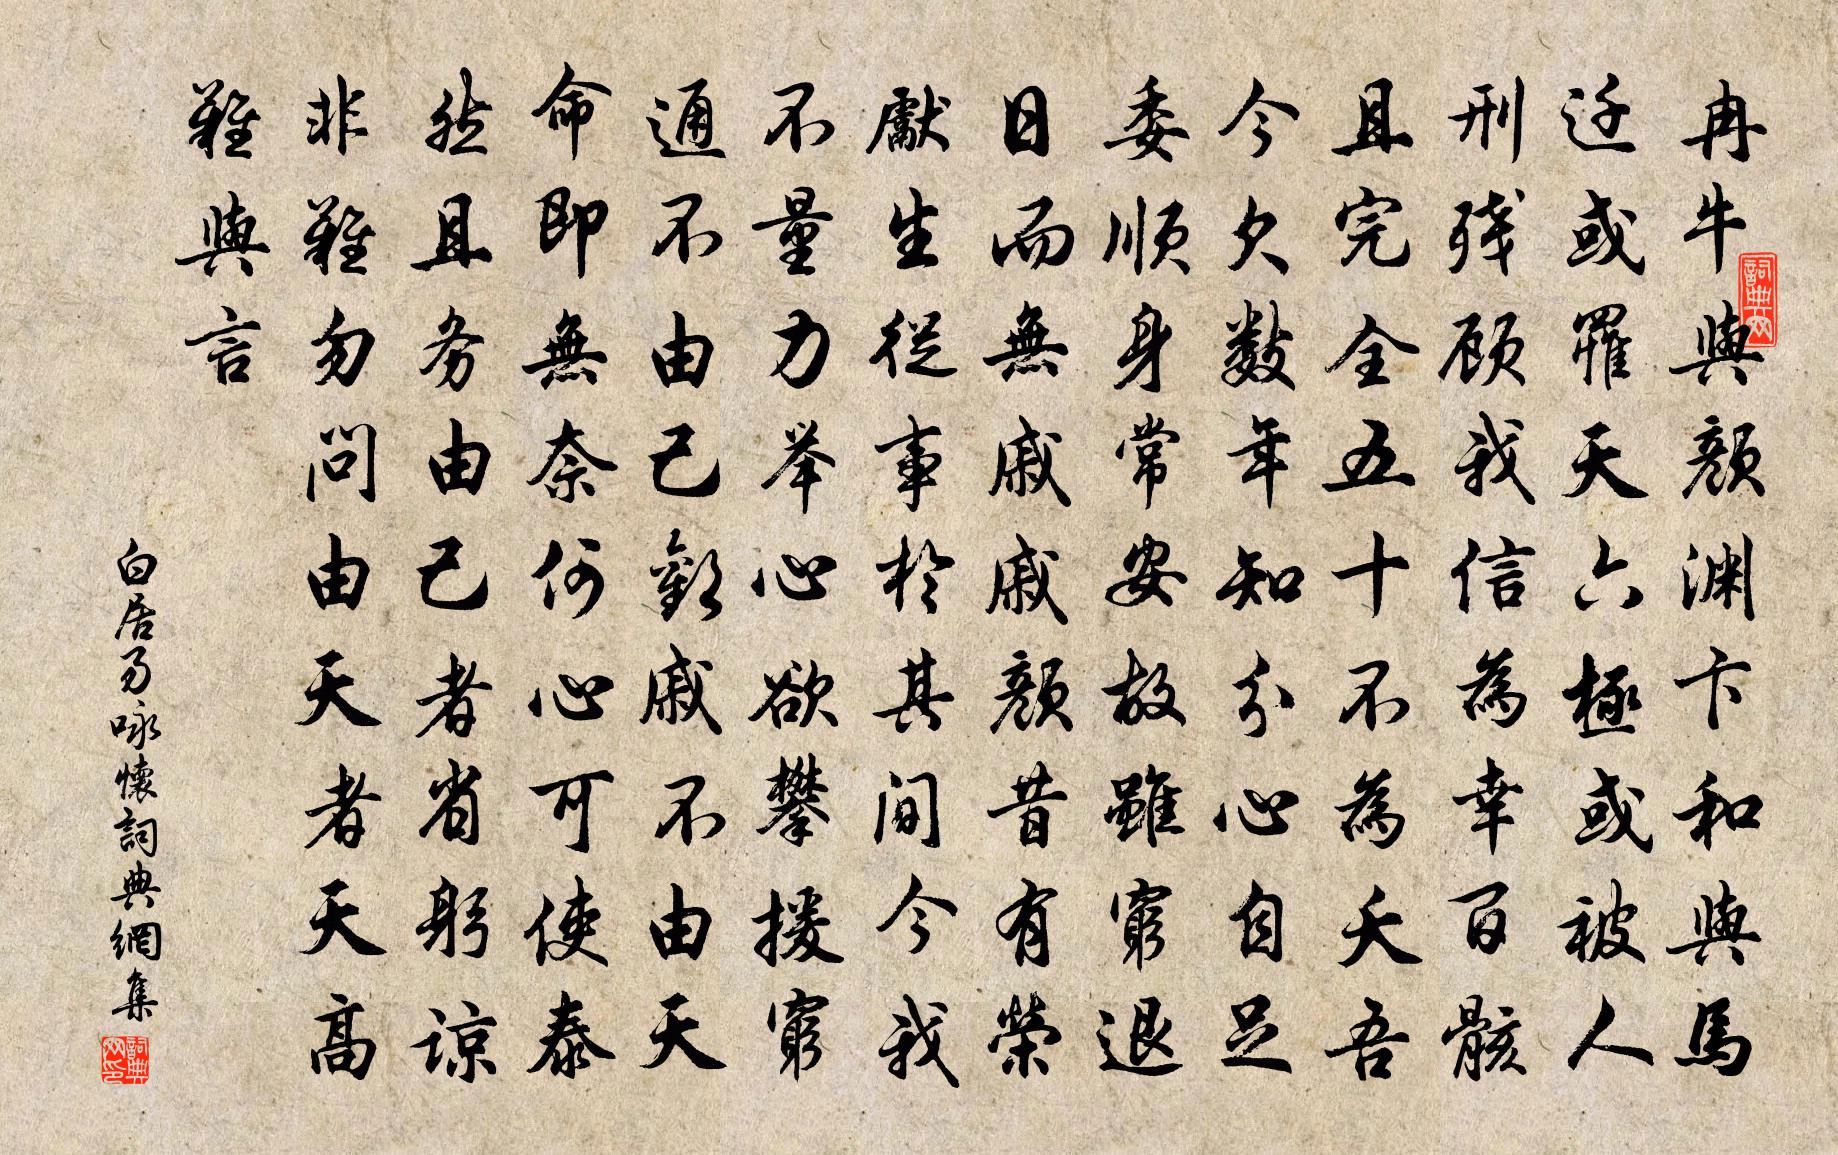 冉牛與顔渊卞和與馬
迁或罹天六極或被人
刑残顾我信為幸百骸
且完全五十不為夭吾
今欠数年知分心自足
委顺身常安故雖窮退
日而無戚戚顔昔有榮
獻生從事於其间今我
不量力举心欲攀援窮
通不由己歡戚不由天
命即無奈何心可使泰
然且务由己者省躬谅
非難勿問由天者天高
難與言
白居易咏懷詞典網集
詞典网
詞典网印